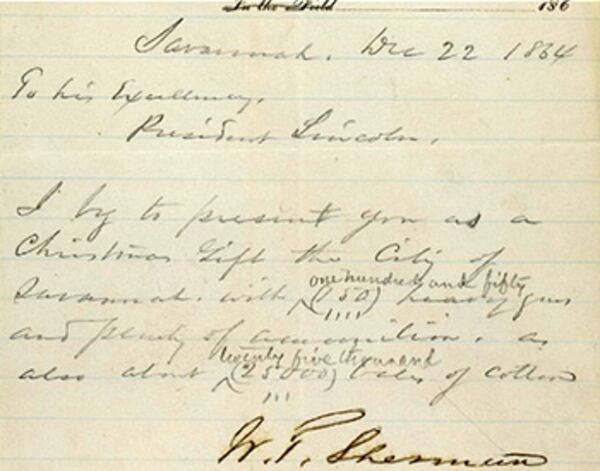 In the Field 186
Savannah. Dec 22 1864
To his Excellency,
President Lincoln.
I beg to present you as a
Christmas Gift the City of
one hundred and fifty
Savannah. with (150) heavy guns
and plenty of ammunition. as
twenty five thousand
also about (25000) bales of cotton
W. T. Sherman